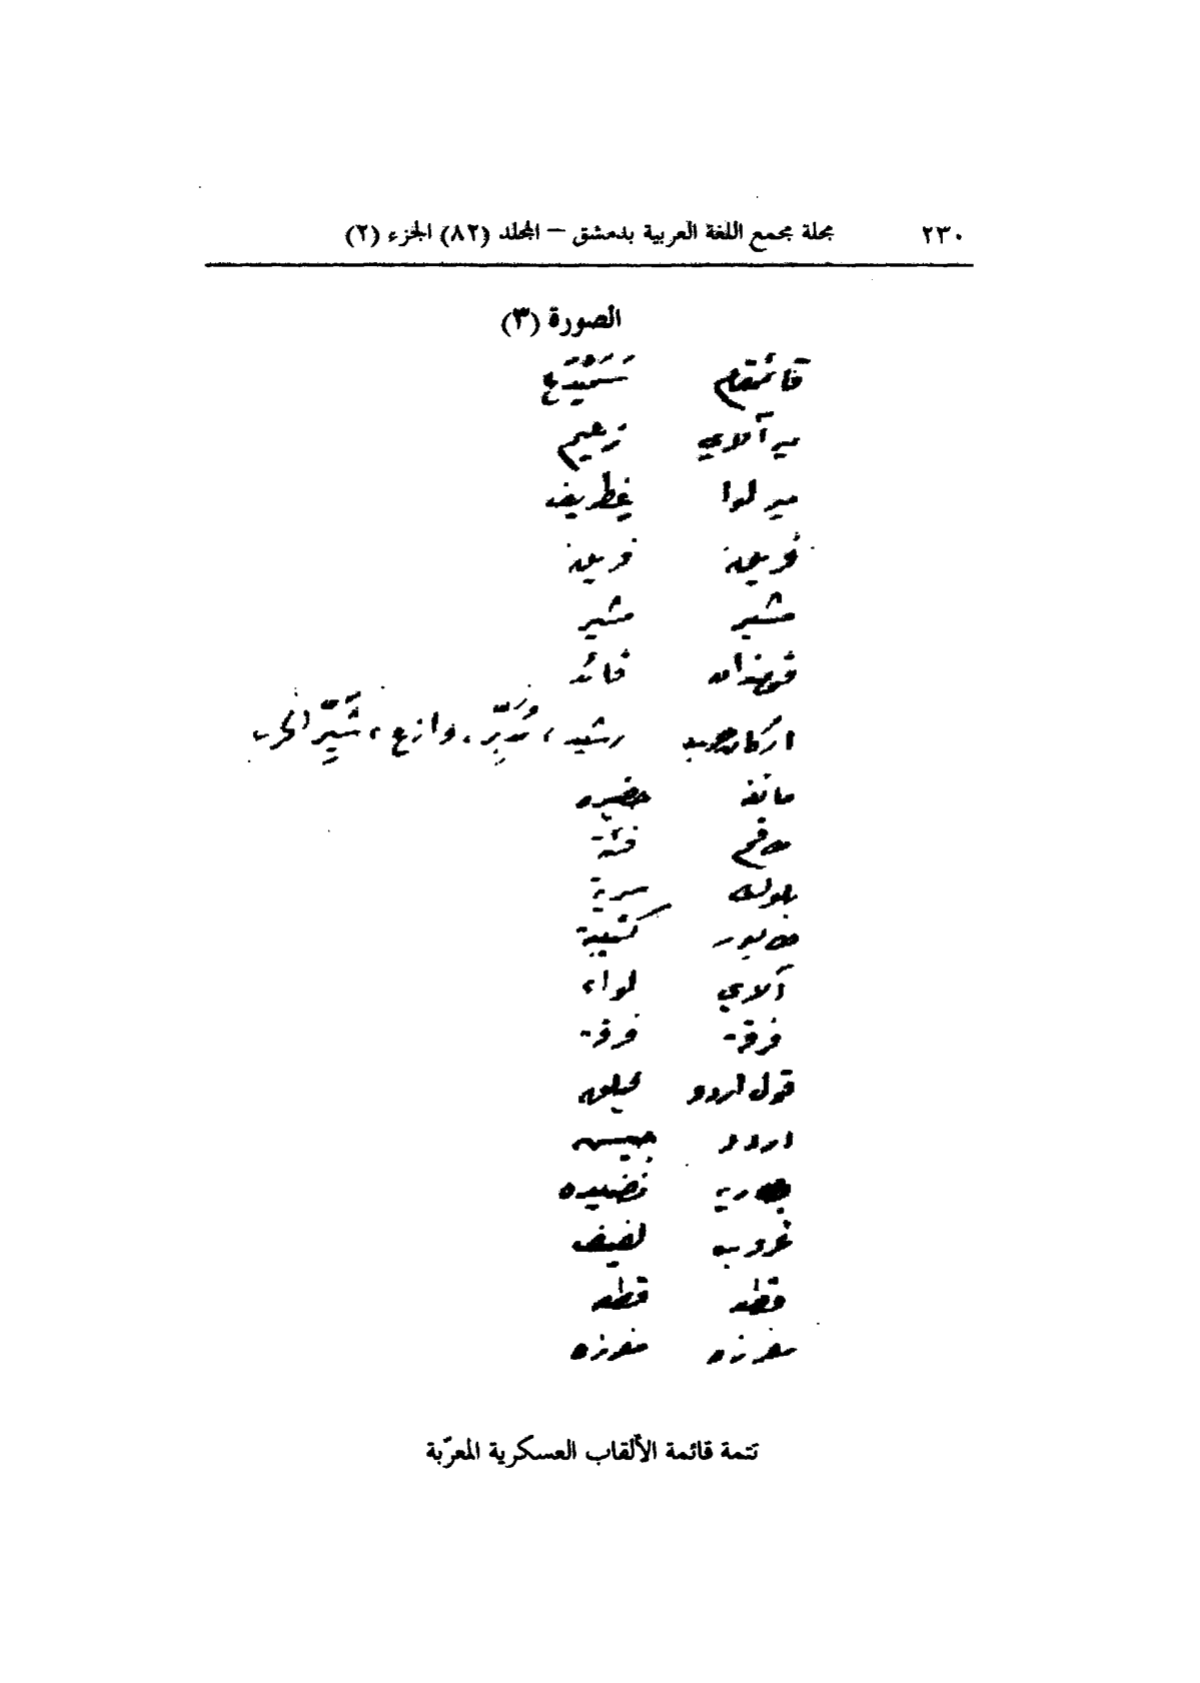 ٢٣٠ مجلة مجمع اللغة العربية بدمشق – المجلد (٨٢) الجزء (٢)
الصورة (٣)
قائمقام سَمَيْدَع
مير آلاي زعيم
مير لوا غطريف
فريق فريق
مشير مشير
قائد
اركان حرب رشيد، مُدَبِّر، وازع، شَيِّر الحرب
مانغه حضيره
طاقم فئة
بلوك سرية
طابور كتيبة
آلاي لواء
فرقة فرقة
قول اردو فيلق
اردو جيش
نضيده
غروب لفيف
قطعه قطعه
مفرزه مفرزه
تتمة قائمة الألقاب العسكرية المعرّبة